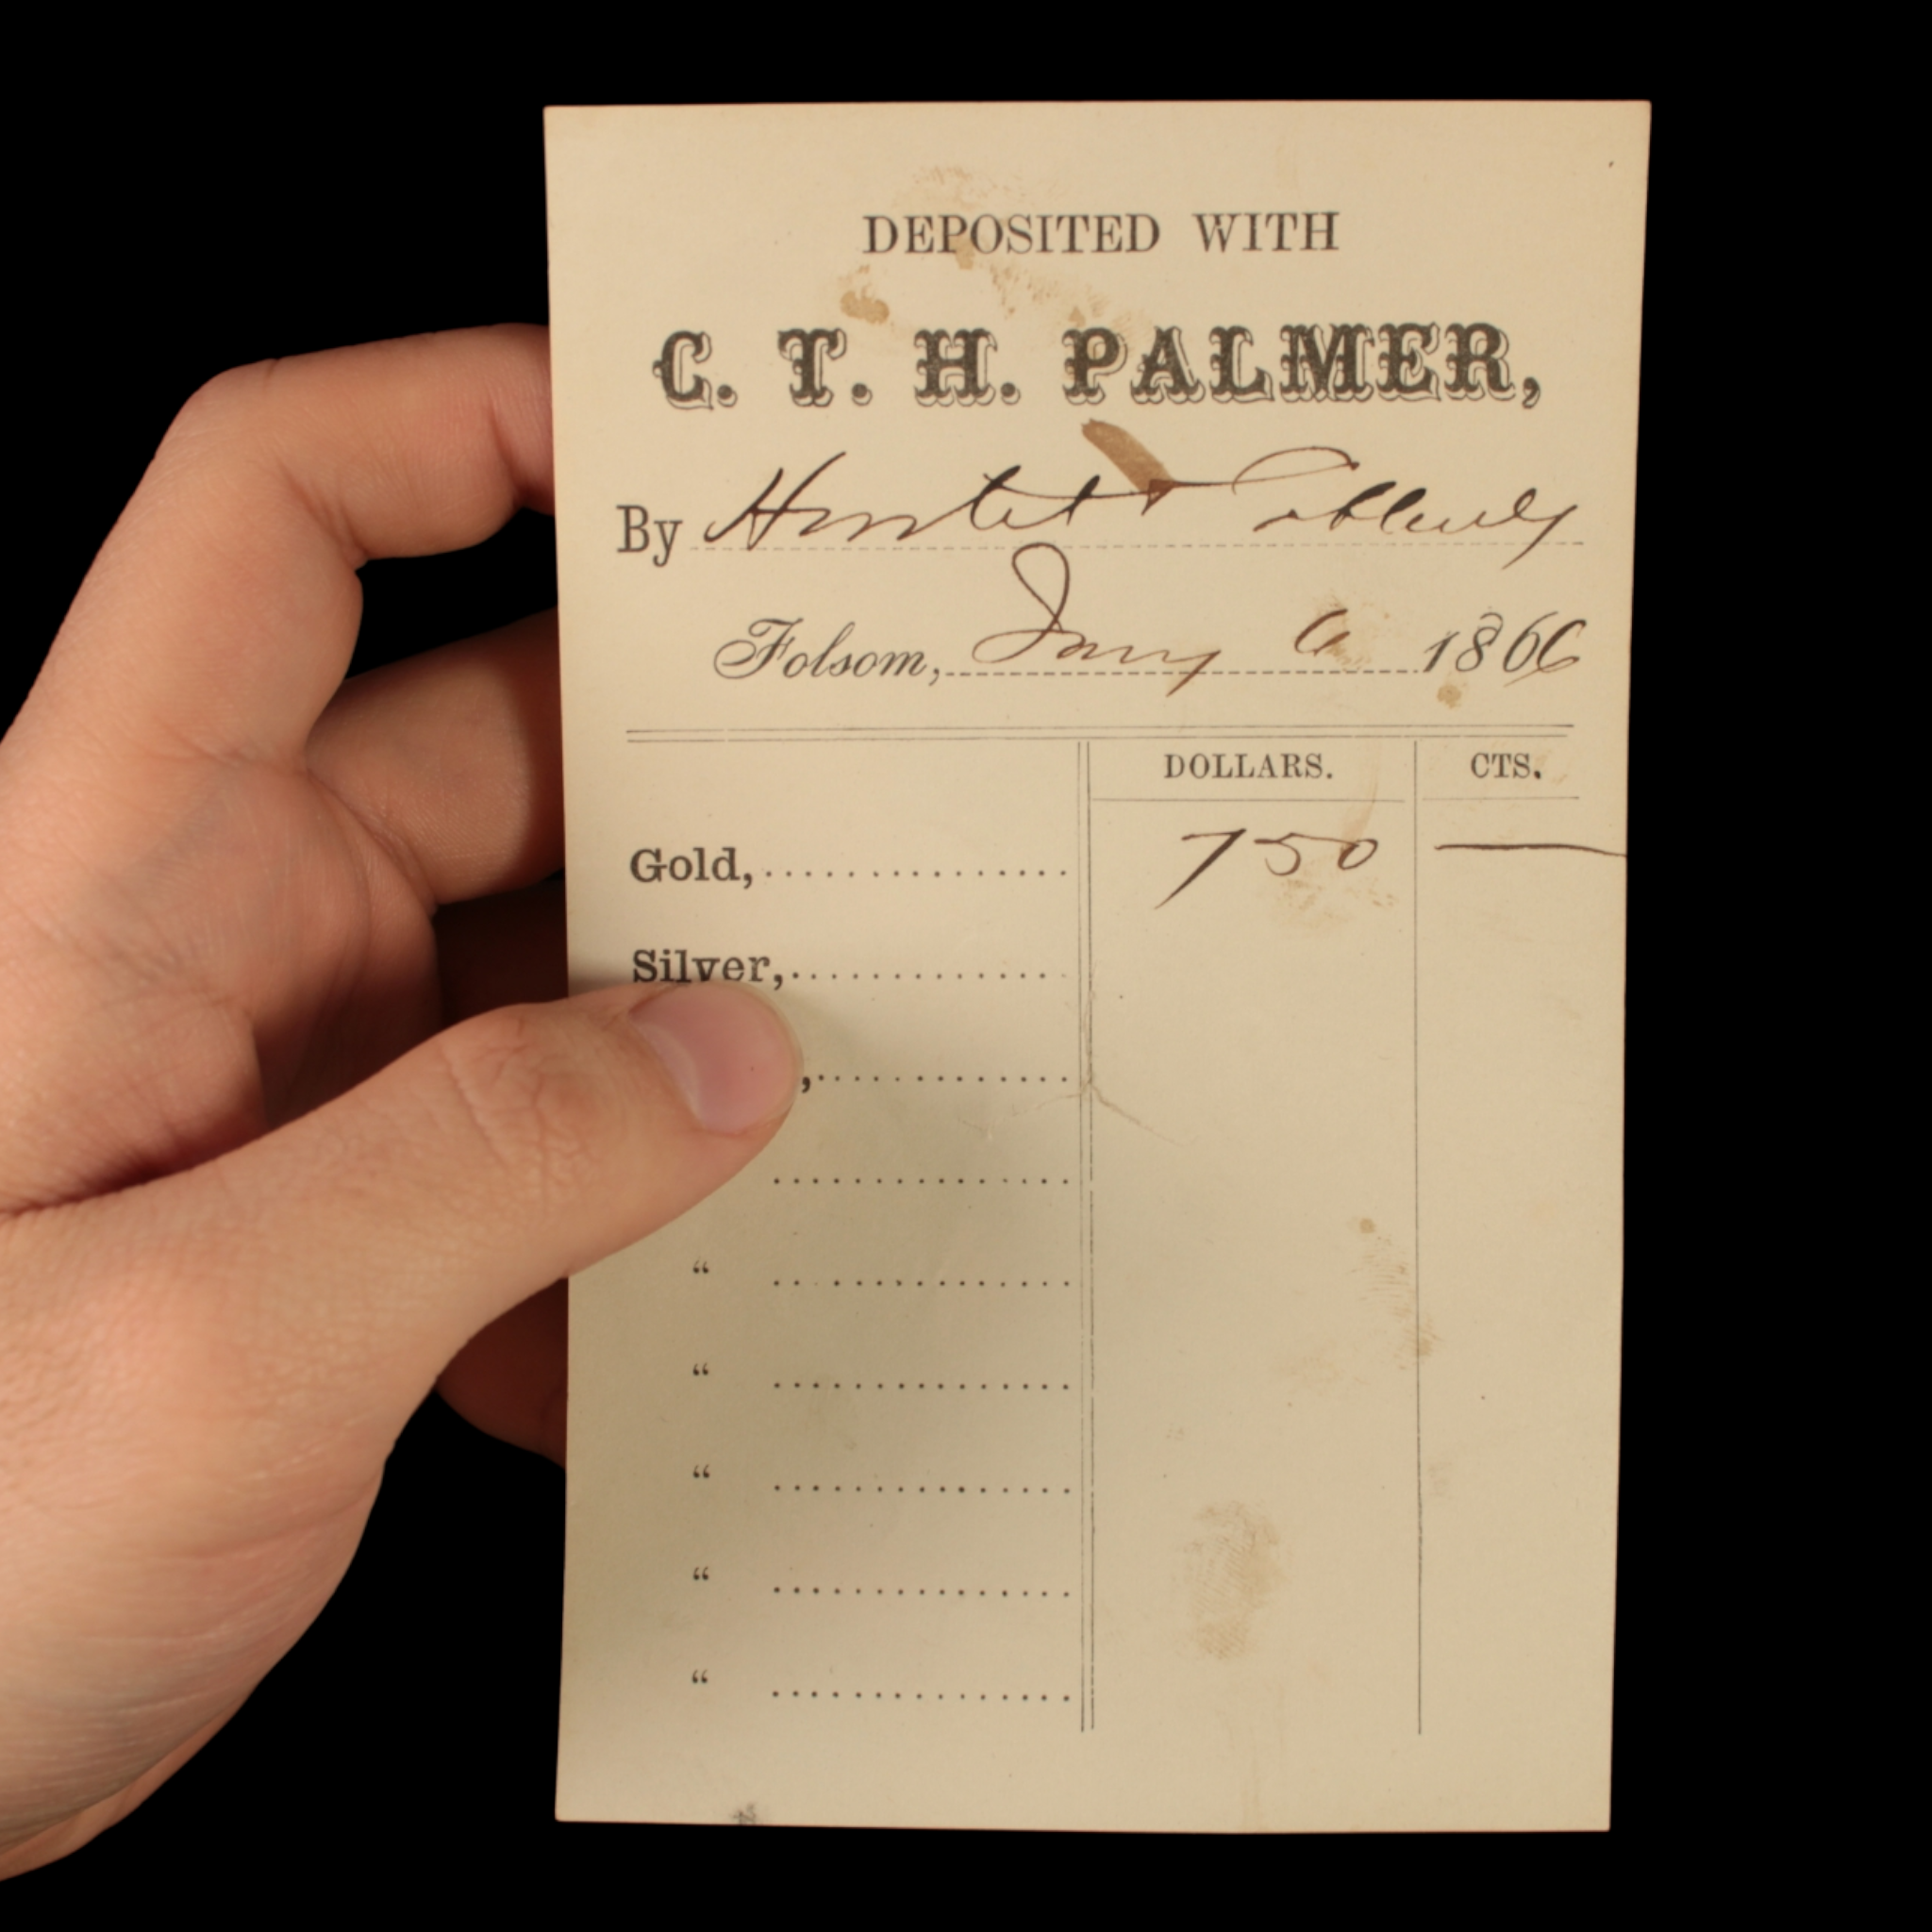 DEPOSITED WITH
C. T. H. PALMER,
By
Folsom, Jany 6 1866
DOLLARS. CTS.
Gold, 750 —
Silver,
,
“
“
“
“
“